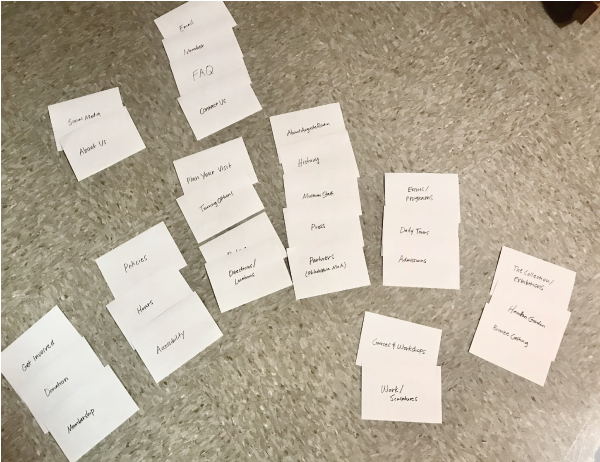 Email
Number
FAQ
Contact Us
Social Media
About Us
Plan Your Visit
Touring Options
Directions/
Locations
About Auguste Rodin
History
Museum Staff
Press
Partners
Events/
Programs
Daily Tours
Admissions
Policies
Hours
Accessibility
The Collection/
Exhibitions
Garden
Bronze Casting
Get Involved
Donation
Membership
Courses & Workshops
Work/
Sculptures